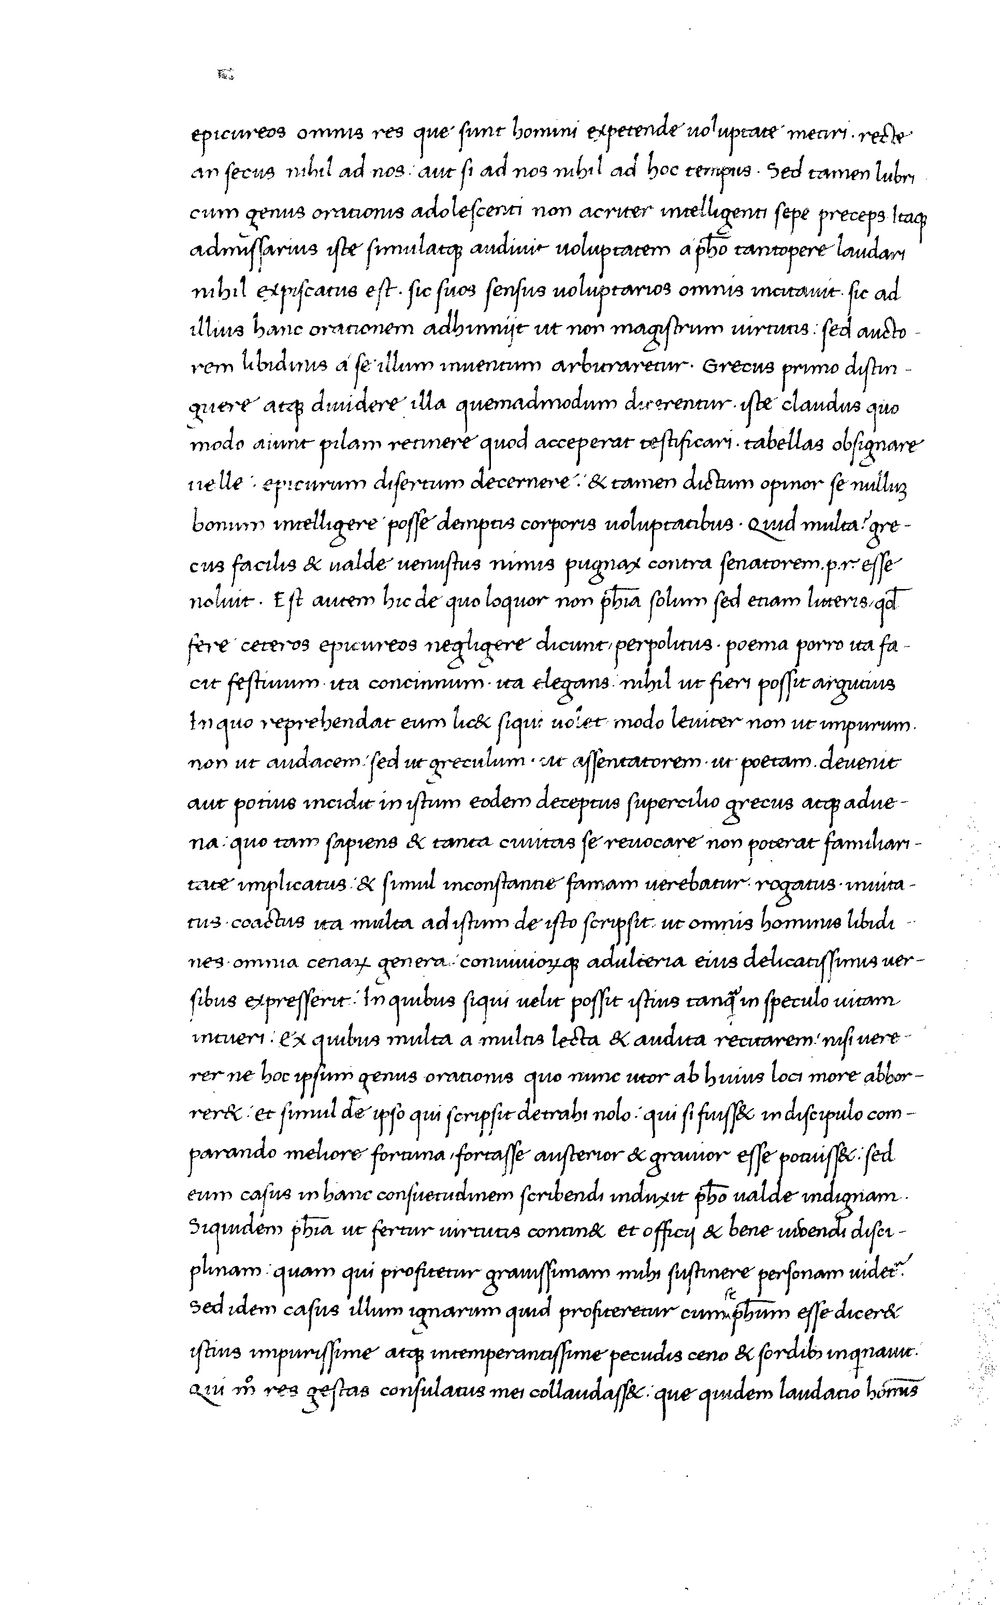 epicureos omnis res que sunt homini expetende uoluptate metiri. recte
an secus nihil ad nos: aut si ad nos nihil ad hoc tempus. Sed tamen lubri
cum genus orationis adolescenti non acriter intelligenti sepe preceps. Itaqꝫ
admissarius iste simulatqꝫ audiuit uoluptatem a ph̅o tantopere laudari
nihil expiscatus est. sic suos sensus uoluptarios omnis incitauit. sic ad
illius hanc orationem adhinnijt ut non magistrum uirtutis: sed aucto-
rem libidinis a se illum inuentum arbitraretur. Grecus primo distin-
guere atqꝫ diuidere illa quemadmodum dicerentur. iste claudus quo
modo aiunt pilam retinere quod acceperat testificari. tabellas obsignare
uelle: epicurum disertum decernere: & tamen dictum opinor se nulluꝫ
bonum intelligere posse demptis corporis uoluptatibus. Quid multa? gre-
cus facilis & ualde uenustus nimis pugnax contra senatorem .p.r. esse
noluit. Est autem hic de quo loquor non ph̅ia solum sed etiam litteris, qd̅
fere ceteros epicureos negligere dicunt, perpolitus. poema porro ita fa-
cit festiuum. ita concinnum. ita elegans: nihil ut fieri possit argutius
In quo reprehendat eum lic& siquis uolet modo leuiter non ut impurum.
non ut audacem: sed ut greculum. ut assentatorem. ut poetam. deuenit
aut potius incidit in istum eodem deceptus supercilio grecus atqꝫ adue-
na: quo tam sapiens & tanta ciuitas se reuocare non poterat familiari-
tate implicatus: & simul inconstantie famam uerebatur. rogatus. inuita-
tus. coactus ita multa ad istum de isto scripsit: ut omnis hominis libidi-
nes. omnia cenaꝝ genera: conuiuioꝝqꝫ adulteria eius delicatissimis uer-
sibus expresserit: In quibus siqui uelit possit istius tanq̃ in speculo uitam
intueri: Ex quibus multa a multis lecta & audita recitarem: nisi uere-
rer ne hoc ipsum genus orationis quo nunc utor ab huius loci more abhor-
rer&: et simul de ipso qui scripsit detrahi nolo: qui si fuiss& in discipulo com-
parando meliore fortuna, fortasse austerior & grauior esse potuiss&: sed
eum casus in hanc consuetudinem scribendi induxit ph̅o ualde indignam.
Siquidem ph̅ia ut fertur uirtutis contin& et officij & bene uiuendi disci-
plinam: quam qui profitetur grauissimam mihi sustinere personam uidet᷑.
Sed idem casus illum ignarum quid profiteretur cum se ph̅um esse dicer&
istius impurissime atqꝫ intemperantissime pecudis ceno & sordibꝫ inqinauit.
Qui mͦ res gestas consulatus mei collaudass&: que quidem laudatio homi̅s